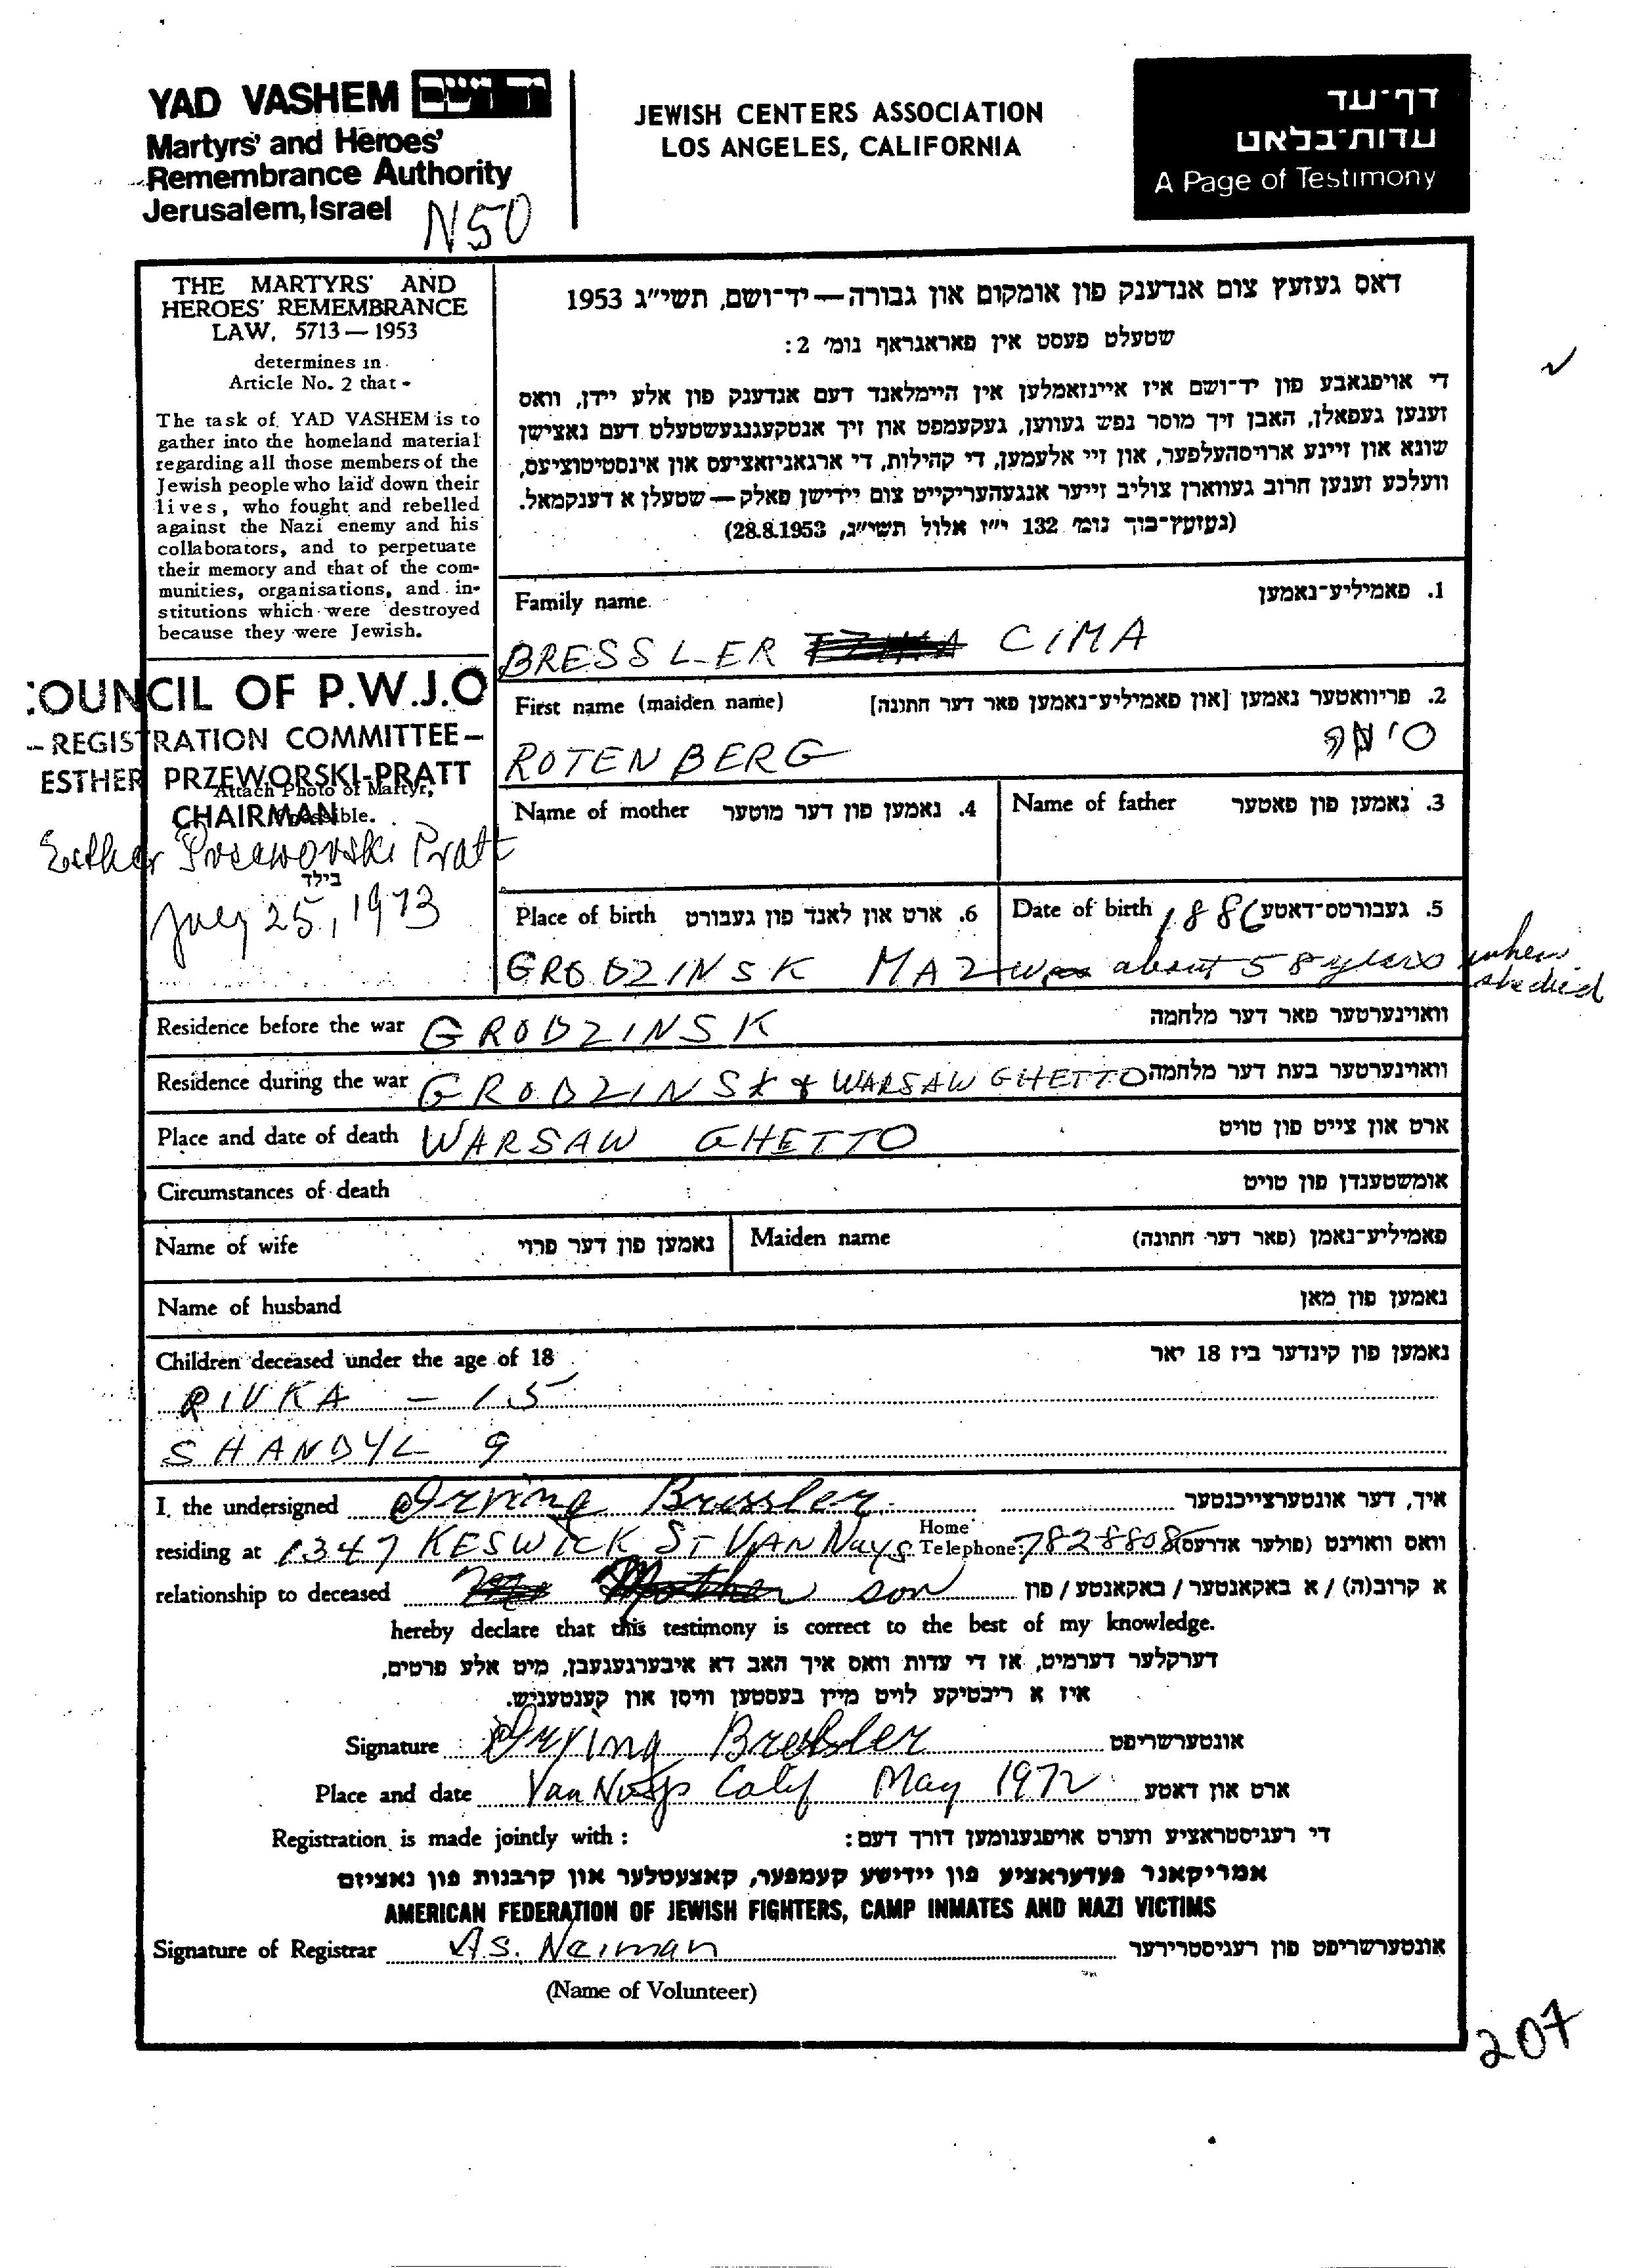 YAD VASHEM יד ושם
Martyrs' and Heroes'
Remembrance Authority
Jerusalem, Israel
N50
JEWISH CENTERS ASSOCIATION
LOS ANGELES, CALIFORNIA
דף־עד
עדות־בלאט
A Page of Testimony
THE MARTYRS' AND
HEROES' REMEMBRANCE
LAW, 5713 — 1953
determines in
Article No. 2 that -
The task of YAD VASHEM is to
gather into the homeland material
regarding all those members of the
Jewish people who laid down their
lives, who fought and rebelled
against the Nazi enemy and his
collaborators, and to perpetuate
their memory and that of the com-
munities, organisations, and in-
stitutions which were destroyed
because they were Jewish.
דאס געזעץ צום אנדענק פון אומקום און גבורה — יד־ושם, תשי"ג 1953
שטעלט פעסט אין פאראגראף נומ' 2:
די אויפגאבע פון יד־ושם איז איינזאמלען אין היימלאנד דעם אנדענק פון אלע יידן, וואס
זענען געפאלן, האבן זיך מוסר נפש געווען, געקעמפט און זיך אנטקעגנגעשטעלט דעם נאצישן
שונא און זיינע ארויסהעלפער, און זיי אלעמען, די קהילות, די ארגאניזאציעס און אינסטיטוציעס,
וועלכע זענען חרוב געווארן צוליב זייער אנגעהעריקייט צום יידישן פאלק — שטעלן א דענקמאל.
(געזעץ־בוך נומ' 132 י"ז אלול תשי"ג, 28.8.1953)
COUNCIL OF P.W.J.O
– REGISTRATION COMMITTEE –
ESTHER PRZEWORSKI-PRATT
Attach Photo of Martyr,
CHAIRMAN
possible.
Esther Przeworski Pratt
בילד
July 25, 1973
Family name 1. פאמיליע־נאמען
BRESSLER CIMA
First name (maiden name) 2. פריוואטער נאמען [און פאמיליע־נאמען פאר דער חתונה]
ROTENBERG סימה
Name of mother 4. נאמען פון דער מוטער
Name of father 3. נאמען פון פאטער
Place of birth 6. ארט און לאנד פון געבורט
GRODZINSK MAZ
Date of birth 1886 5. געבורטס־דאטע
was about 58 years when
she died
Residence before the war GRODZINSK וואוינערטער פאר דער מלחמה
Residence during the war GRODZINSK & WARSAW GHETTO וואוינערטער בעת דער מלחמה
Place and date of death WARSAW GHETTO ארט און צייט פון טויט
Circumstances of death אומשטענדן פון טויט
Name of wife נאמען פון דער פרוי
Maiden name פאמיליע־נאמן (פאר דער חתונה)
Name of husband נאמען פון מאן
Children deceased under the age of 18 נאמען פון קינדער ביז 18 יאר
RIVKA – 15
SHANDYL 9
I, the undersigned Irving Bressler איך, דער אונטערצייכנטער
residing at 1347 KESWICK ST VAN Nuys Home Telephone: 7828808 וואס וואוינט (פולער אדרעס)
relationship to deceased Mother son א קרוב(ה) / א באקאנטער / באקאנטע / פון
hereby declare that this testimony is correct to the best of my knowledge.
דערקלער דערמיט, אז די עדות וואס איך האב דא איבערגעגעבן, מיט אלע פרטים,
איז א ריכטיקע לויט מיין בעסטען וויסן און קענטעניש.
Signature Irving Bressler אונטערשריפט
Place and date Van Nuys Calif May 1972 ארט און דאטע
Registration is made jointly with : די רעגיסטראציע ווערט אויפגענומען דורך דעם:
אמריקאנר פעדעראציע פון יידישע קעמפער, קאצעטלער און קרבנות פון נאציזם
AMERICAN FEDERATION OF JEWISH FIGHTERS, CAMP INMATES AND NAZI VICTIMS
Signature of Registrar A.S. Neiman אונטערשריפט פון רעגיסטרירער
(Name of Volunteer)
207